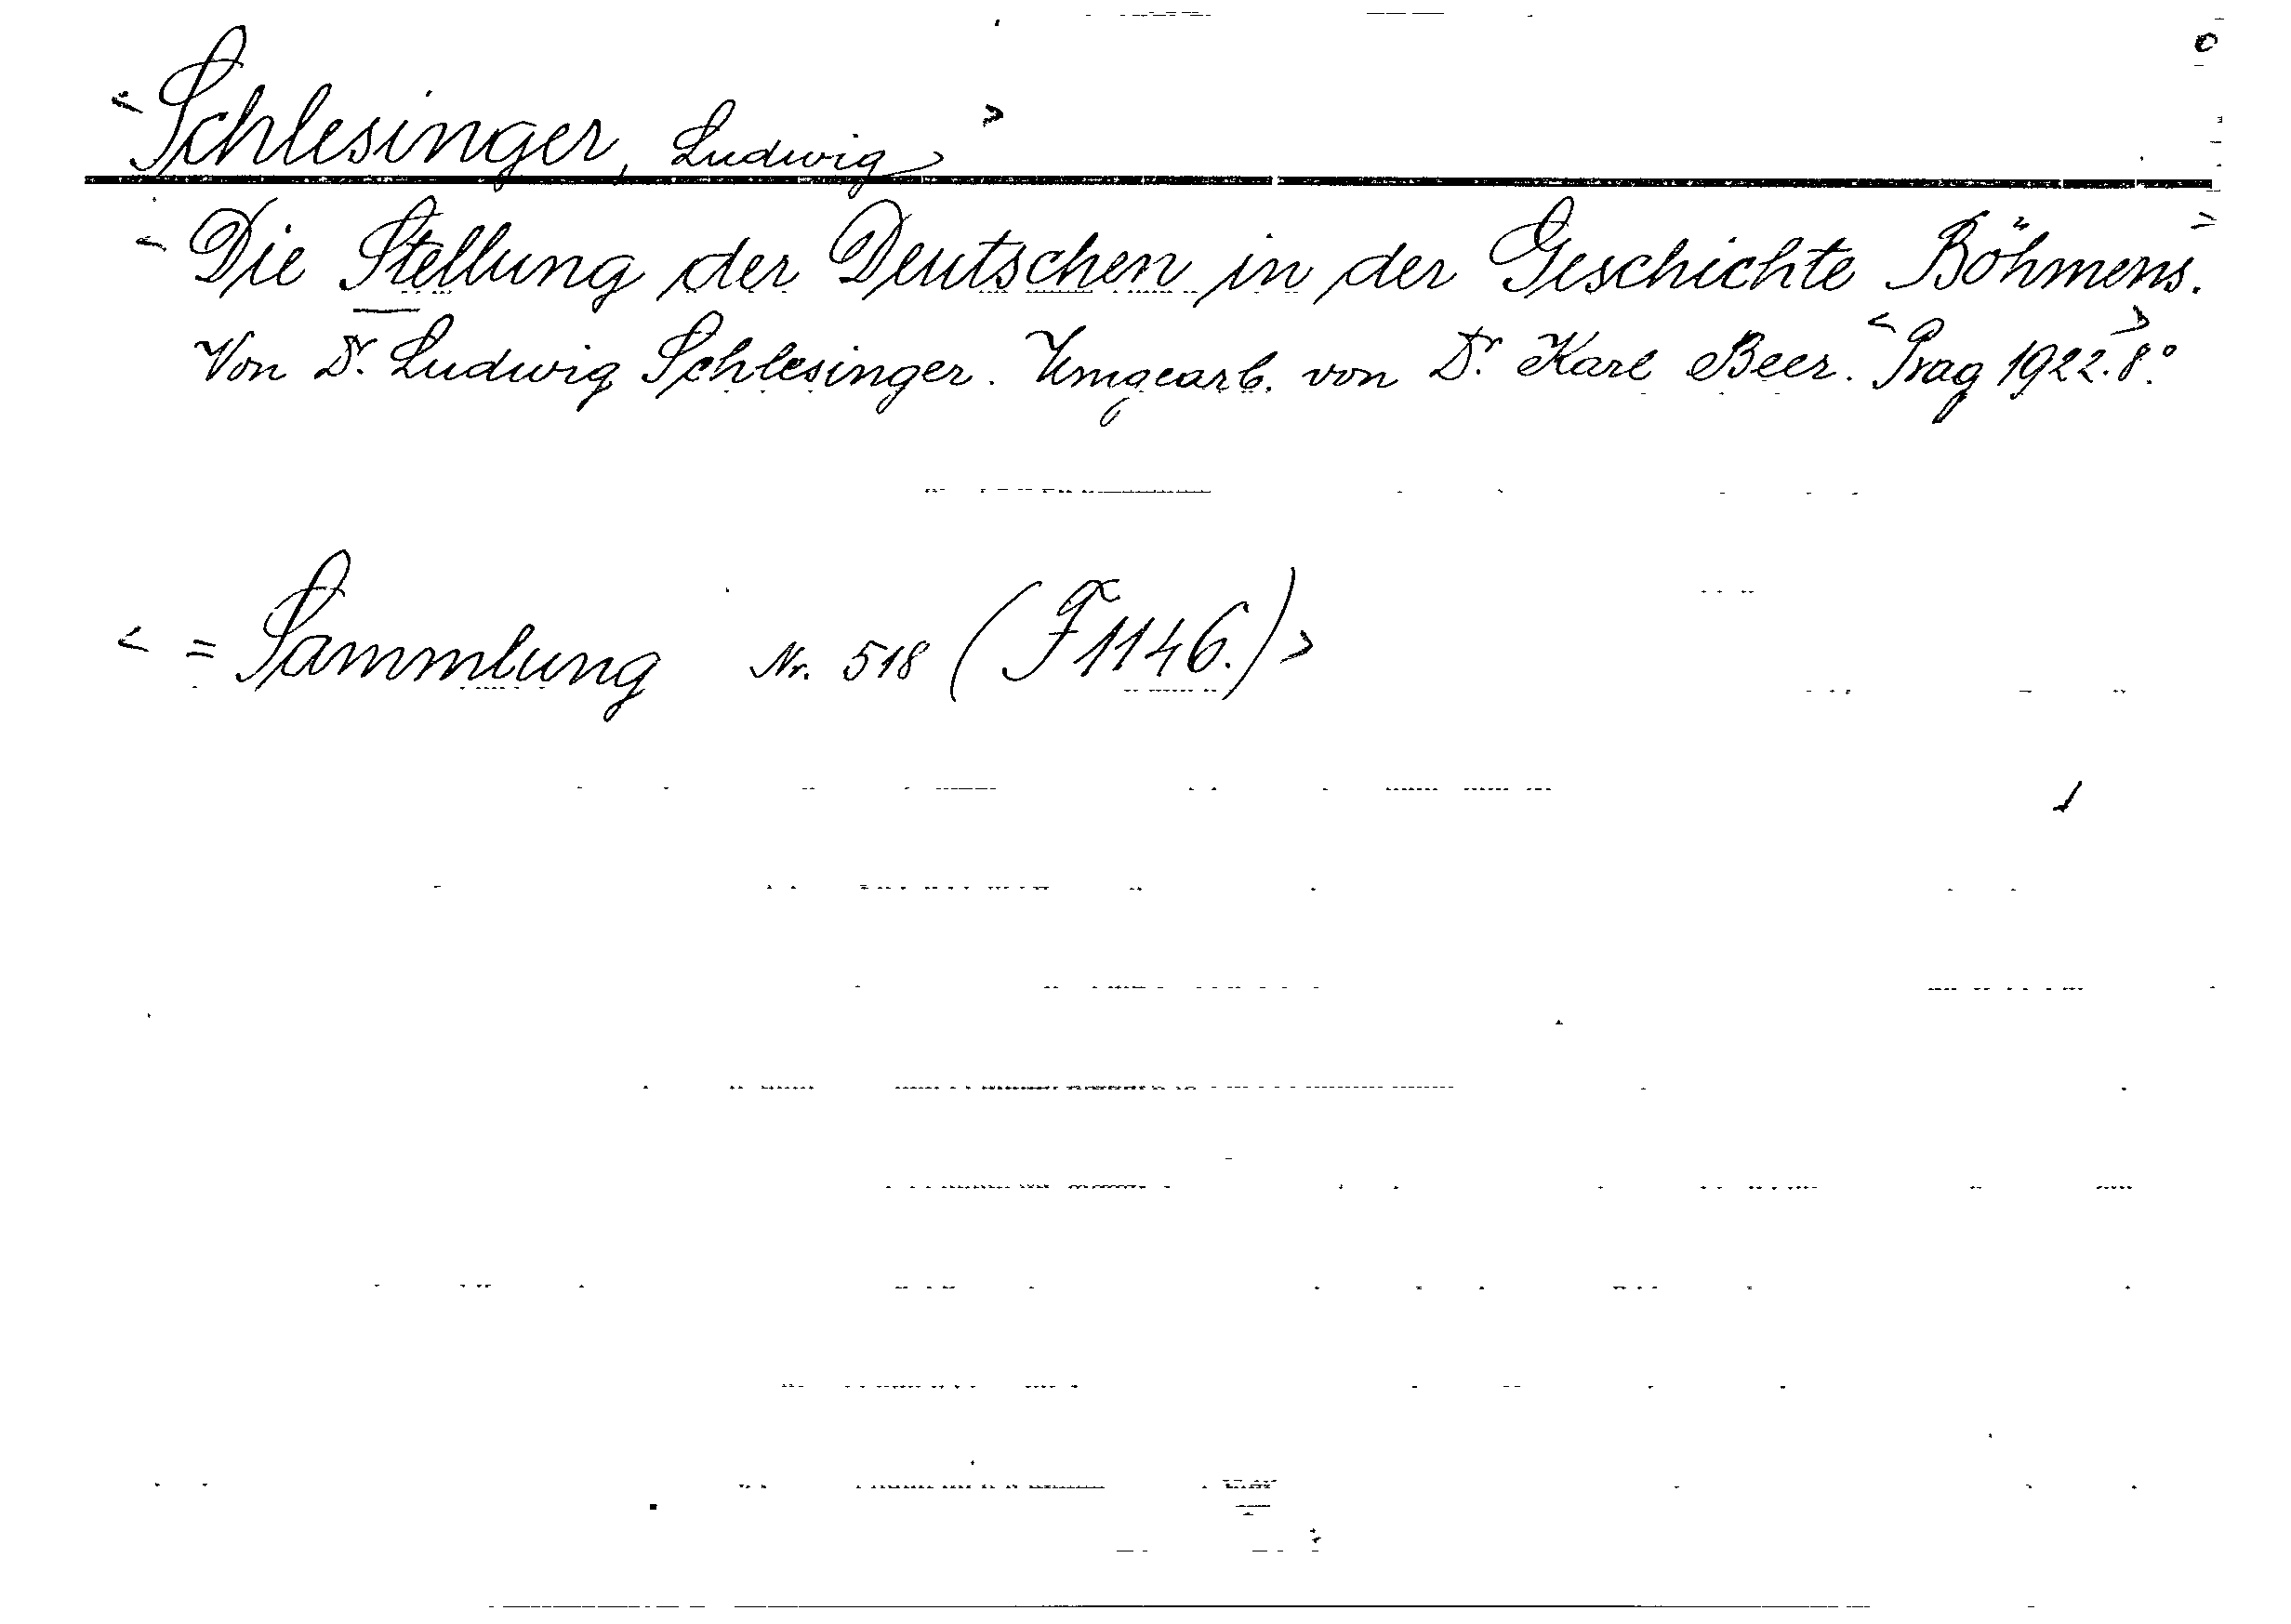 <Schlesinger, Ludwig>
<Die Stellung der Deutschen in der Geschichte Böhmens.>
Von Dr. Ludwig Schlesinger. Umgearb. von Dr. Karl Beer. <Prag 1922.> 8°.
< = Sammlung Nr. 518 (F 1146.)>